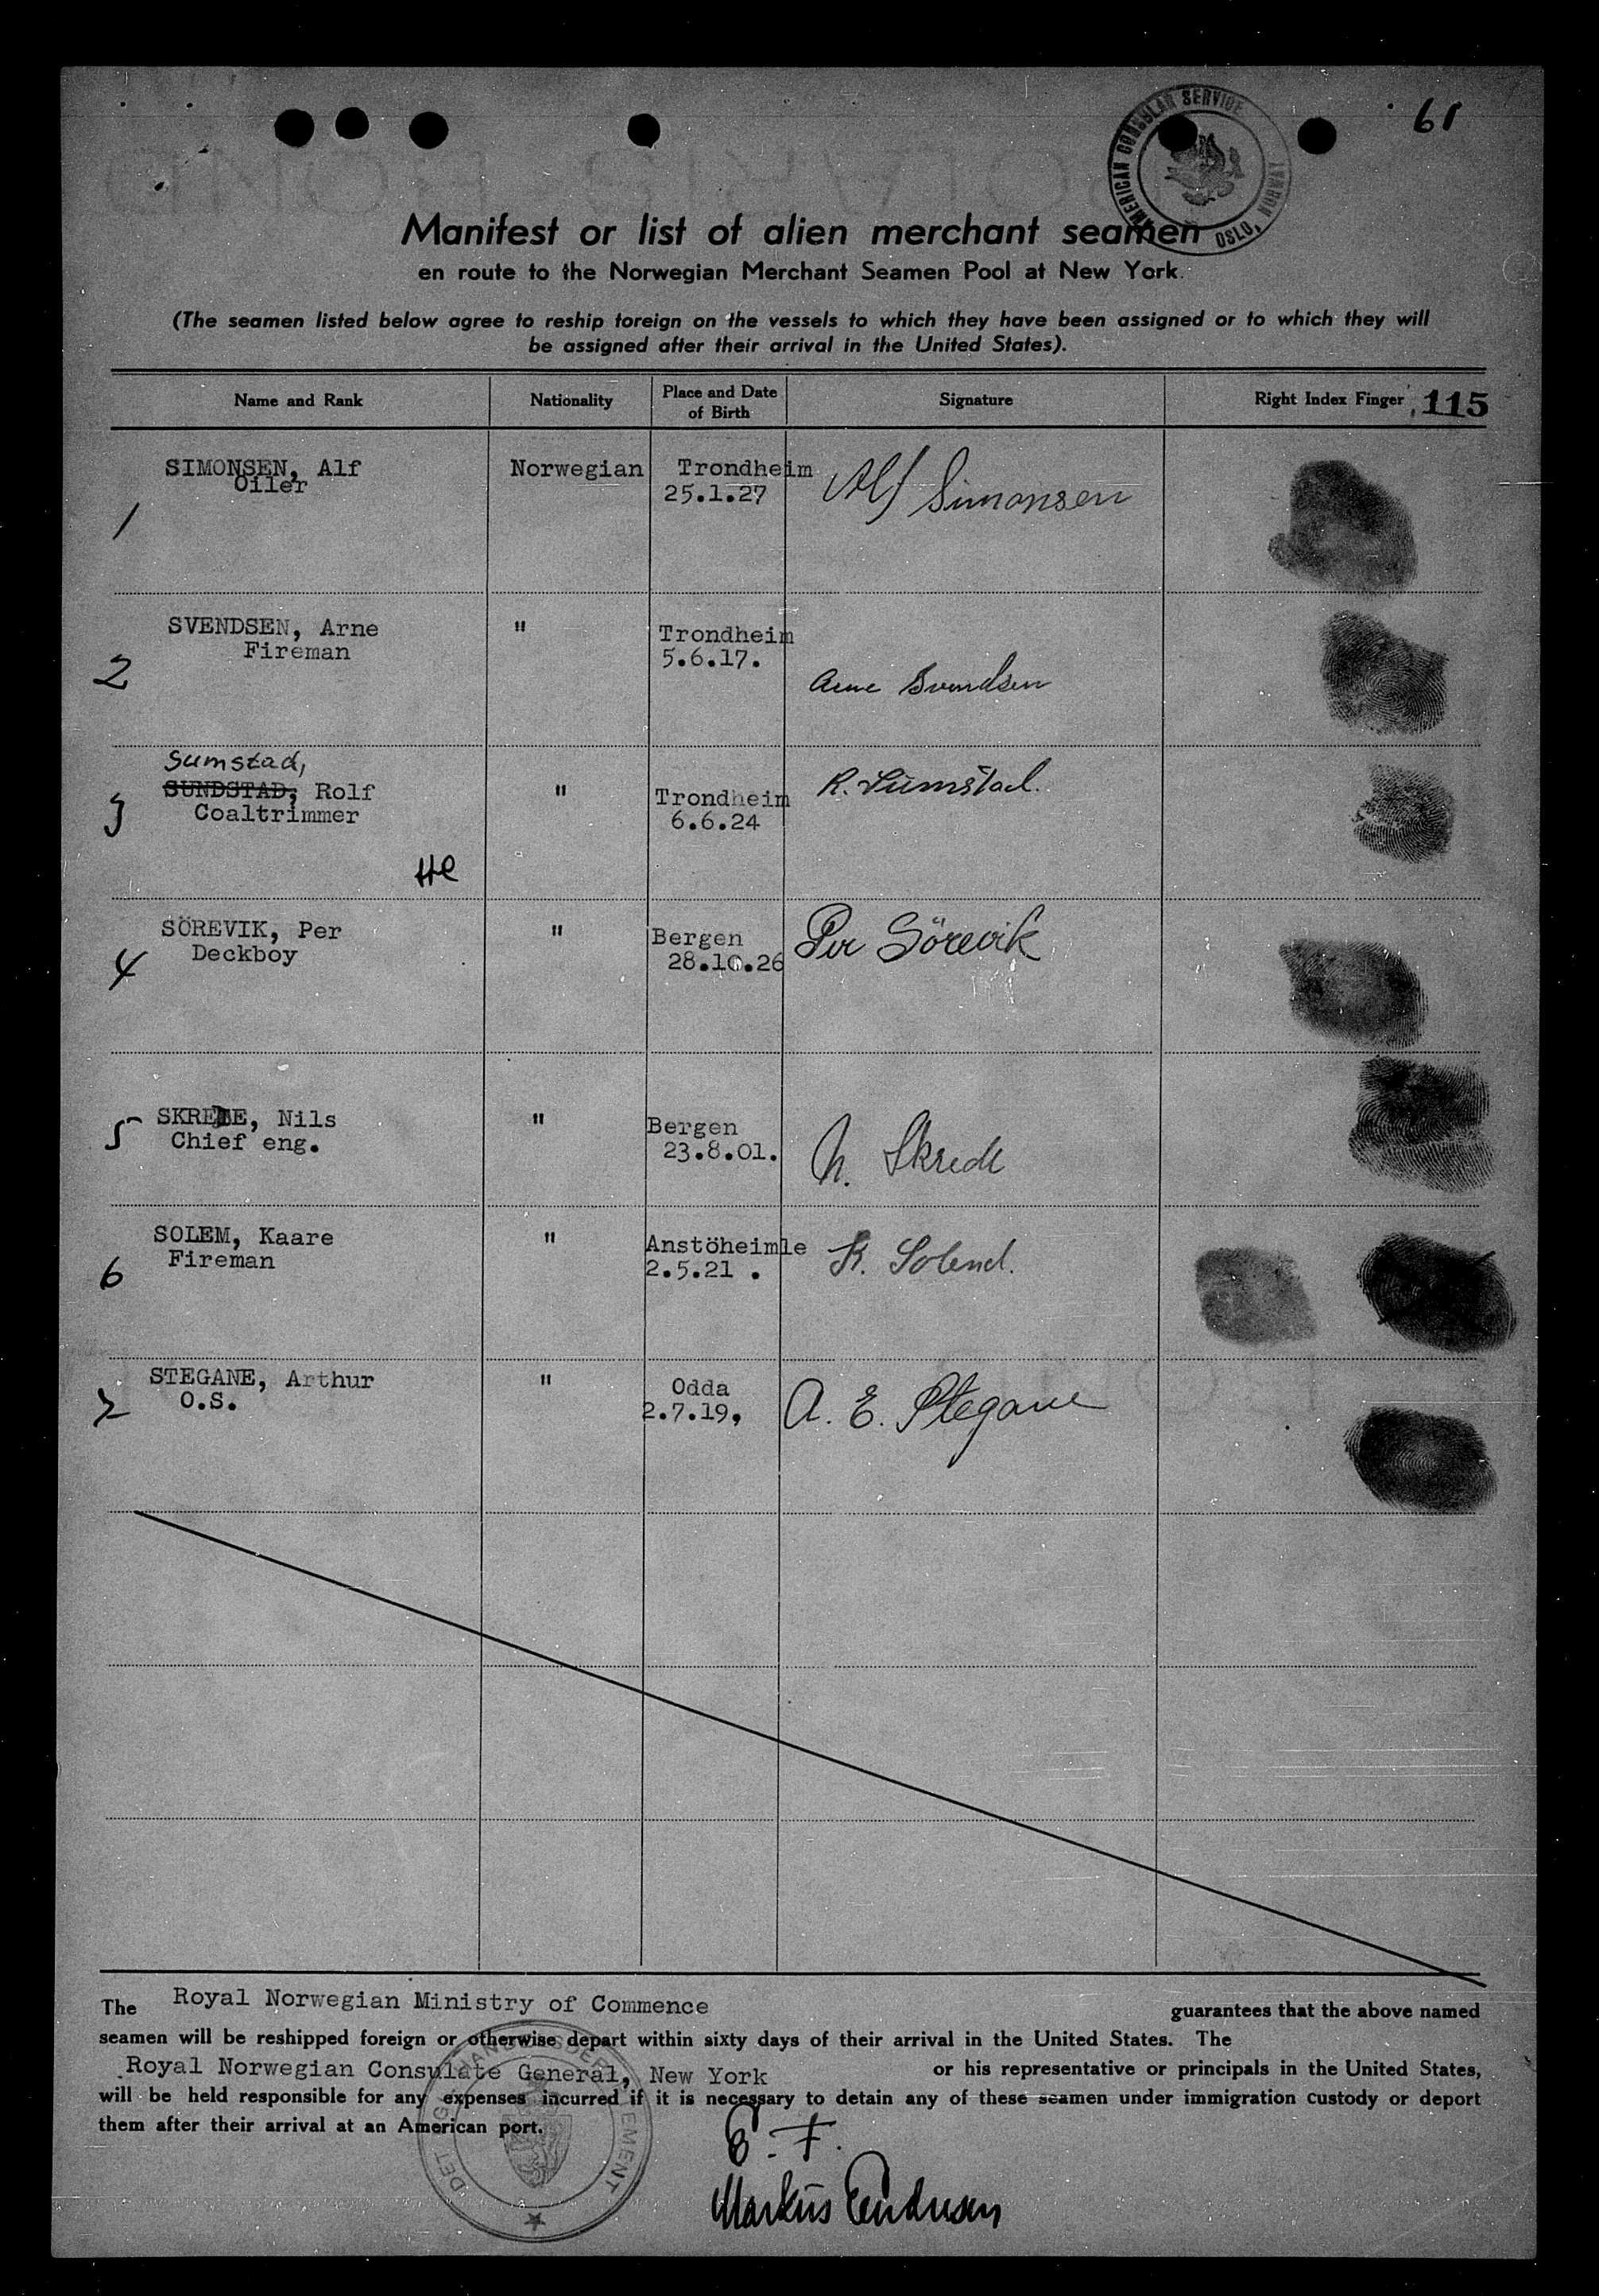 61
AMERICAN CONSULAR SERVICE
OSLO, NORWAY
Manifest or list of alien merchant seamen
en route to the Norwegian Merchant Seamen Pool at New York.
(The seamen listed below agree to reship foreign on the vessels to which they have been assigned or to which they will
be assigned after their arrival in the United States).
Name and Rank Nationality Place and Date of Birth Signature Right Index Finger 115
1 SIMONSEN, Alf Norwegian Trondheim Alf Simonsen
Oiler 25.1.27
2 SVENDSEN, Arne " Trondheim Arne Svendsen
Fireman 5.6.17.
Sumstad,
3 SUNDSTAD, Rolf " Trondheim R. Sumstad.
Coaltrimmer 6.6.24
4 SÖREVIK, Per " Bergen Per Sörevik
Deckboy 28.10.26
5 SKREDE, Nils " Bergen N. Skrede
Chief eng. 23.8.01.
6 SOLEM, Kaare " Anstöheimle K. Solend.
Fireman 2.5.21 .
7 STEGANE, Arthur " Odda A. E. Stegane
O.S. 2.7.19,
The Royal Norwegian Ministry of Commence guarantees that the above named
seamen will be reshipped foreign or otherwise depart within sixty days of their arrival in the United States. The
Royal Norwegian Consulate General, New York or his representative or principals in the United States,
will be held responsible for any expenses incurred if it is necessary to detain any of these seamen under immigration custody or deport
them after their arrival at an American port.
Markus